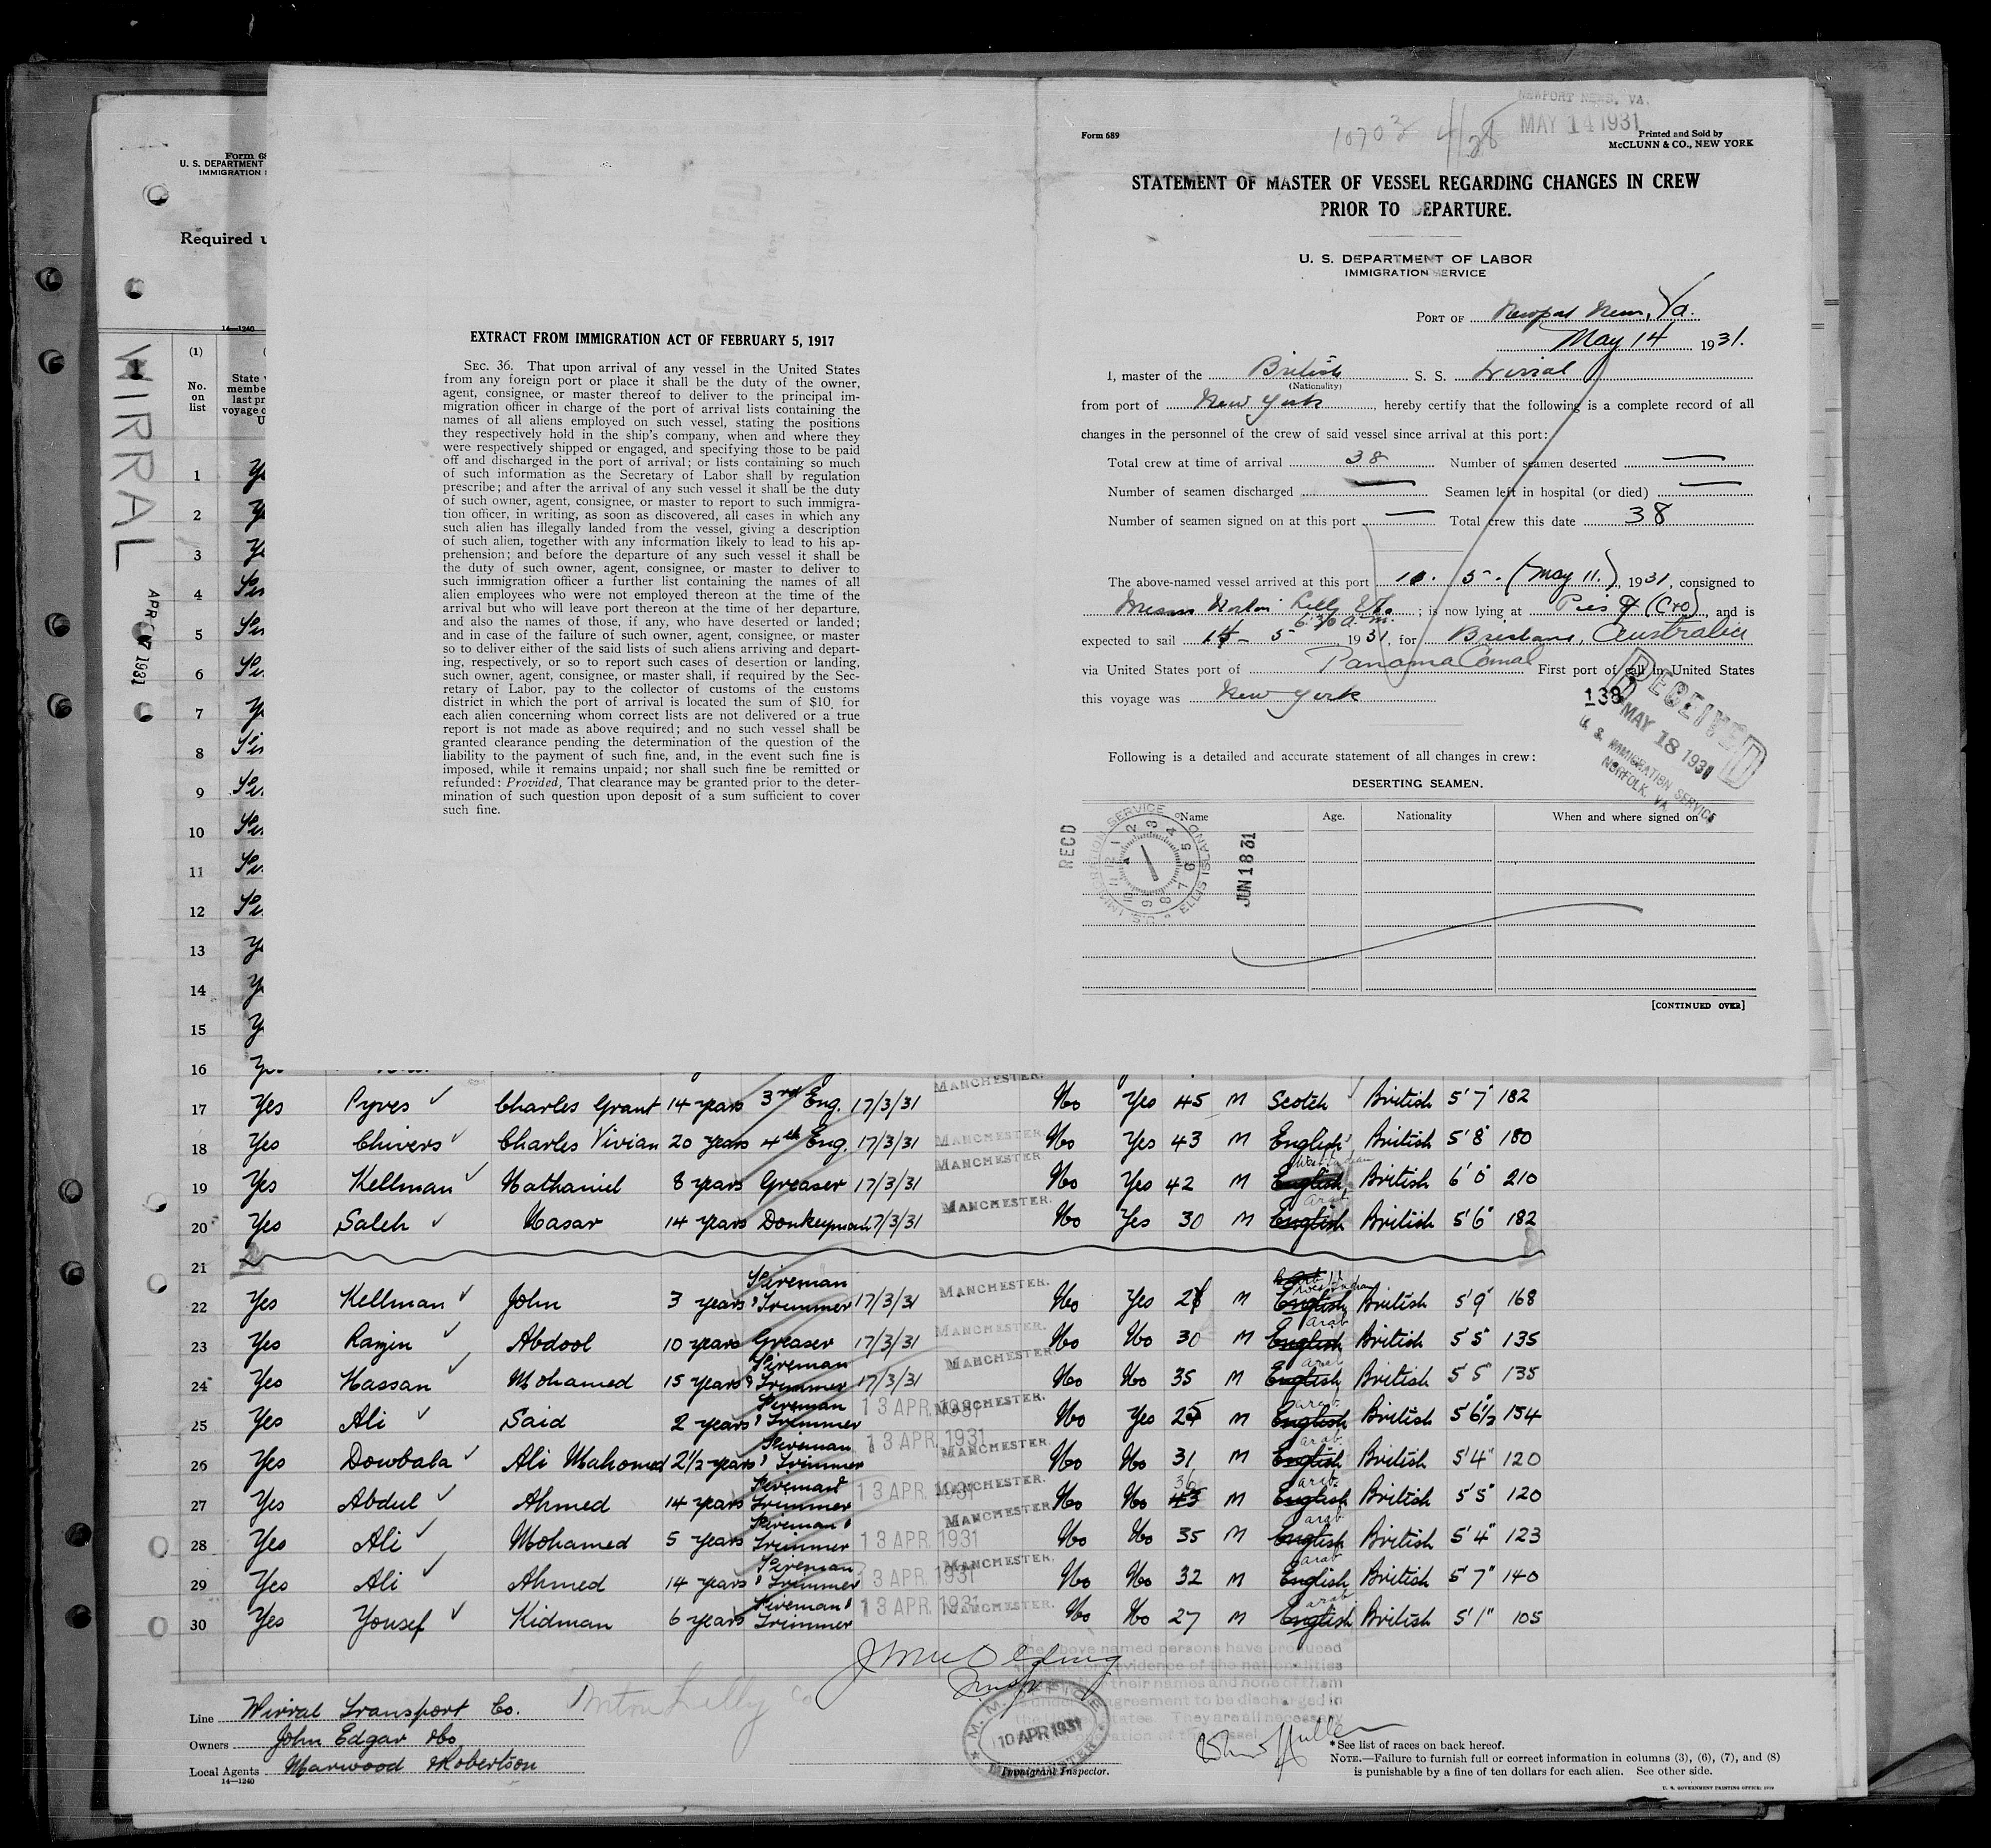 Form 68
U. S. DEPARTMENT
IMMIGRATION
Required u
14—1240
WIRRAL
APR 1931
(1)
No.
on
list
State
membe
last pr
voyage
U
1 Ye
2 Ye
3 Ye
4
5
6
7 Ye
8
9
10
11
12
13 Ye
14 Ye
15 Ye
16 Ye
EXTRACT FROM IMMIGRATION ACT OF FEBRUARY 5, 1917
SEC. 36. That upon arrival of any vessel in the United States
from any foreign port or place it shall be the duty of the owner,
agent, consignee, or master thereof to deliver to the principal im-
migration officer in charge of the port of arrival lists containing the
names of all aliens employed on such vessel, stating the positions
they respectively hold in the ship's company, when and where they
were respectively shipped or engaged, and specifying those to be paid
off and discharged in the port of arrival; or lists containing so much
of such information as the Secretary of Labor shall by regulation
prescribe; and after the arrival of any such vessel it shall be the duty
of such owner, agent, consignee, or master to report to such immigra-
tion officer, in writing, as soon as discovered, all cases in which any
such alien has illegally landed from the vessel, giving a description
of such alien, together with any information likely to lead to his ap-
prehension; and before the departure of any such vessel it shall be
the duty of such owner, agent, consignee, or master to deliver to
such immigration officer a further list containing the names of all
alien employees who were not employed thereon at the time of the
arrival but who will leave port thereon at the time of her departure,
and also the names of those, if any, who have deserted or landed;
and in case of the failure of such owner, agent, consignee, or master
so to deliver either of the said lists of such aliens arriving and depart-
ing, respectively, or so to report such cases of desertion or landing,
such owner, agent, consignee, or master shall, if required by the Sec-
retary of Labor, pay to the collector of customs of the customs
district in which the port of arrival is located the sum of $10 for
each alien concerning whom correct lists are not delivered or a true
report is not made as above required; and no such vessel shall be
granted clearance pending the determination of the question of the
liability to the payment of such fine, and, in the event such fine is
imposed, while it remains unpaid; nor shall such fine be remitted or
refunded: Provided, That clearance may be granted prior to the deter-
mination of such question upon deposit of a sum sufficient to cover
such fine.
NEWPORT NEWS, VA.
MAY 14 1931
Form 689
4/28
Printed and Sold by
McCLUNN & CO., NEW YORK
STATEMENT OF MASTER OF VESSEL REGARDING CHANGES IN CREW
PRIOR TO DEPARTURE.
U. S. DEPARTMENT OF LABOR
IMMIGRATION SERVICE
PORT OF Newport News, Va.
May 14 1931.
I, master of the British S. S. Wirral
(Nationality)
from port of New York, hereby certify that the following is a complete record of all
changes in the personnel of the crew of said vessel since arrival at this port:
Total crew at time of arrival 38 Number of seamen deserted —
Number of seamen discharged — Seamen left in hospital (or died) —
Number of seamen signed on at this port — Total crew this date 38
The above-named vessel arrived at this port 11. 5. (May 11.), 1931, consigned to
Messrs Norton Lilly & Co ; is now lying at Pier 9 (C&O), and is
6:30 a.m.
expected to sail 14 - 5 1931, for Brisbane, Australia
via United States port of Panama Canal First port of call in United States
this voyage was New York
138
RECEIVED
MAY 18 1931
U. S. IMMIGRATION SERVICE
NORFOLK, VA
Following is a detailed and accurate statement of all changes in crew:
DESERTING SEAMEN.
Name Age. Nationality When and where signed on
RECD
U.S. IMMIGRATION SERVICE ELLIS ISLAND
JUN 18 31
[CONTINUED OVER]
17 Yes Pyves Charles Grant 14 years 3rd Eng. 17/3/31 MANCHESTER. No Yes 45 M Scotch British 5'7" 182
18 Yes Chivers Charles Vivian 20 years 4th Eng. 17/3/31 MANCHESTER No Yes 43 M English British 5'8" 180
19 Yes Kellman Nathaniel 8 years Greaser 17/3/31 MANCHESTER No Yes 42 M English West Indian British 6'0" 210
20 Yes Saleh Nasar 14 years Donkeyman 17/3/31 MANCHESTER. No Yes 30 M English Arab British 5'6" 182
21
22 Yes Kellman John 3 years Fireman & Trimmer 17/3/31 MANCHESTER. No Yes 28 M English West Indian British 5'9" 168
23 Yes Ramjin Abdool 10 years Greaser 17/3/31 MANCHESTER. No No 30 M English Arab British 5'5" 135
24 Yes Hassan Mohamed 15 years Fireman & Trimmer 17/3/31 MANCHESTER No No 35 M English Arab British 5'5" 135
25 Yes Ali Said 2 years Fireman & Trimmer 13 APR. 1931 MANCHESTER. No Yes 25 M English Arab British 5'6½ 154
26 Yes Dowbala Ali Mahomed 2½ years Fireman & Trimmer 13 APR. 1931 MANCHESTER. No No 31 M English Arab British 5'4" 120
27 Yes Abdul Ahmed 14 years Fireman & Trimmer 13 APR. 1931 MANCHESTER. No No 43 36 M English Arab British 5'5" 120
28 Yes Ali Mohamed 5 years Fireman & Trimmer 13 APR. 1931 MANCHESTER No No 35 M English Arab British 5'4" 123
29 Yes Ali Ahmed 14 years Fireman & Trimmer 13 APR. 1931 MANCHESTER. No No 32 M English Arab British 5'7" 140
30 Yes Yousef Kidman 6 years Fireman & Trimmer 13 APR. 1931 MANCHESTER. No No 27 M English Arab British 5'1" 105
The above named persons have produced
satisfactory evidence of the nationalities
their names and none of them
under agreement to be discharged in
the United States. They are all necessary
Norton Lilly Co
Line Wirral Transport Co.
Owners John Edgar & Co
Local Agents Marwood & Robertson
14—1240
M. M. OFFICE
10 APR 1931
MANCHESTER
Immigrant Inspector.
*See list of races on back hereof.
NOTE.—Failure to furnish full or correct information in columns (3), (6), (7), and (8)
is punishable by a fine of ten dollars for each alien. See other side.
U. S. GOVERNMENT PRINTING OFFICE: 1930